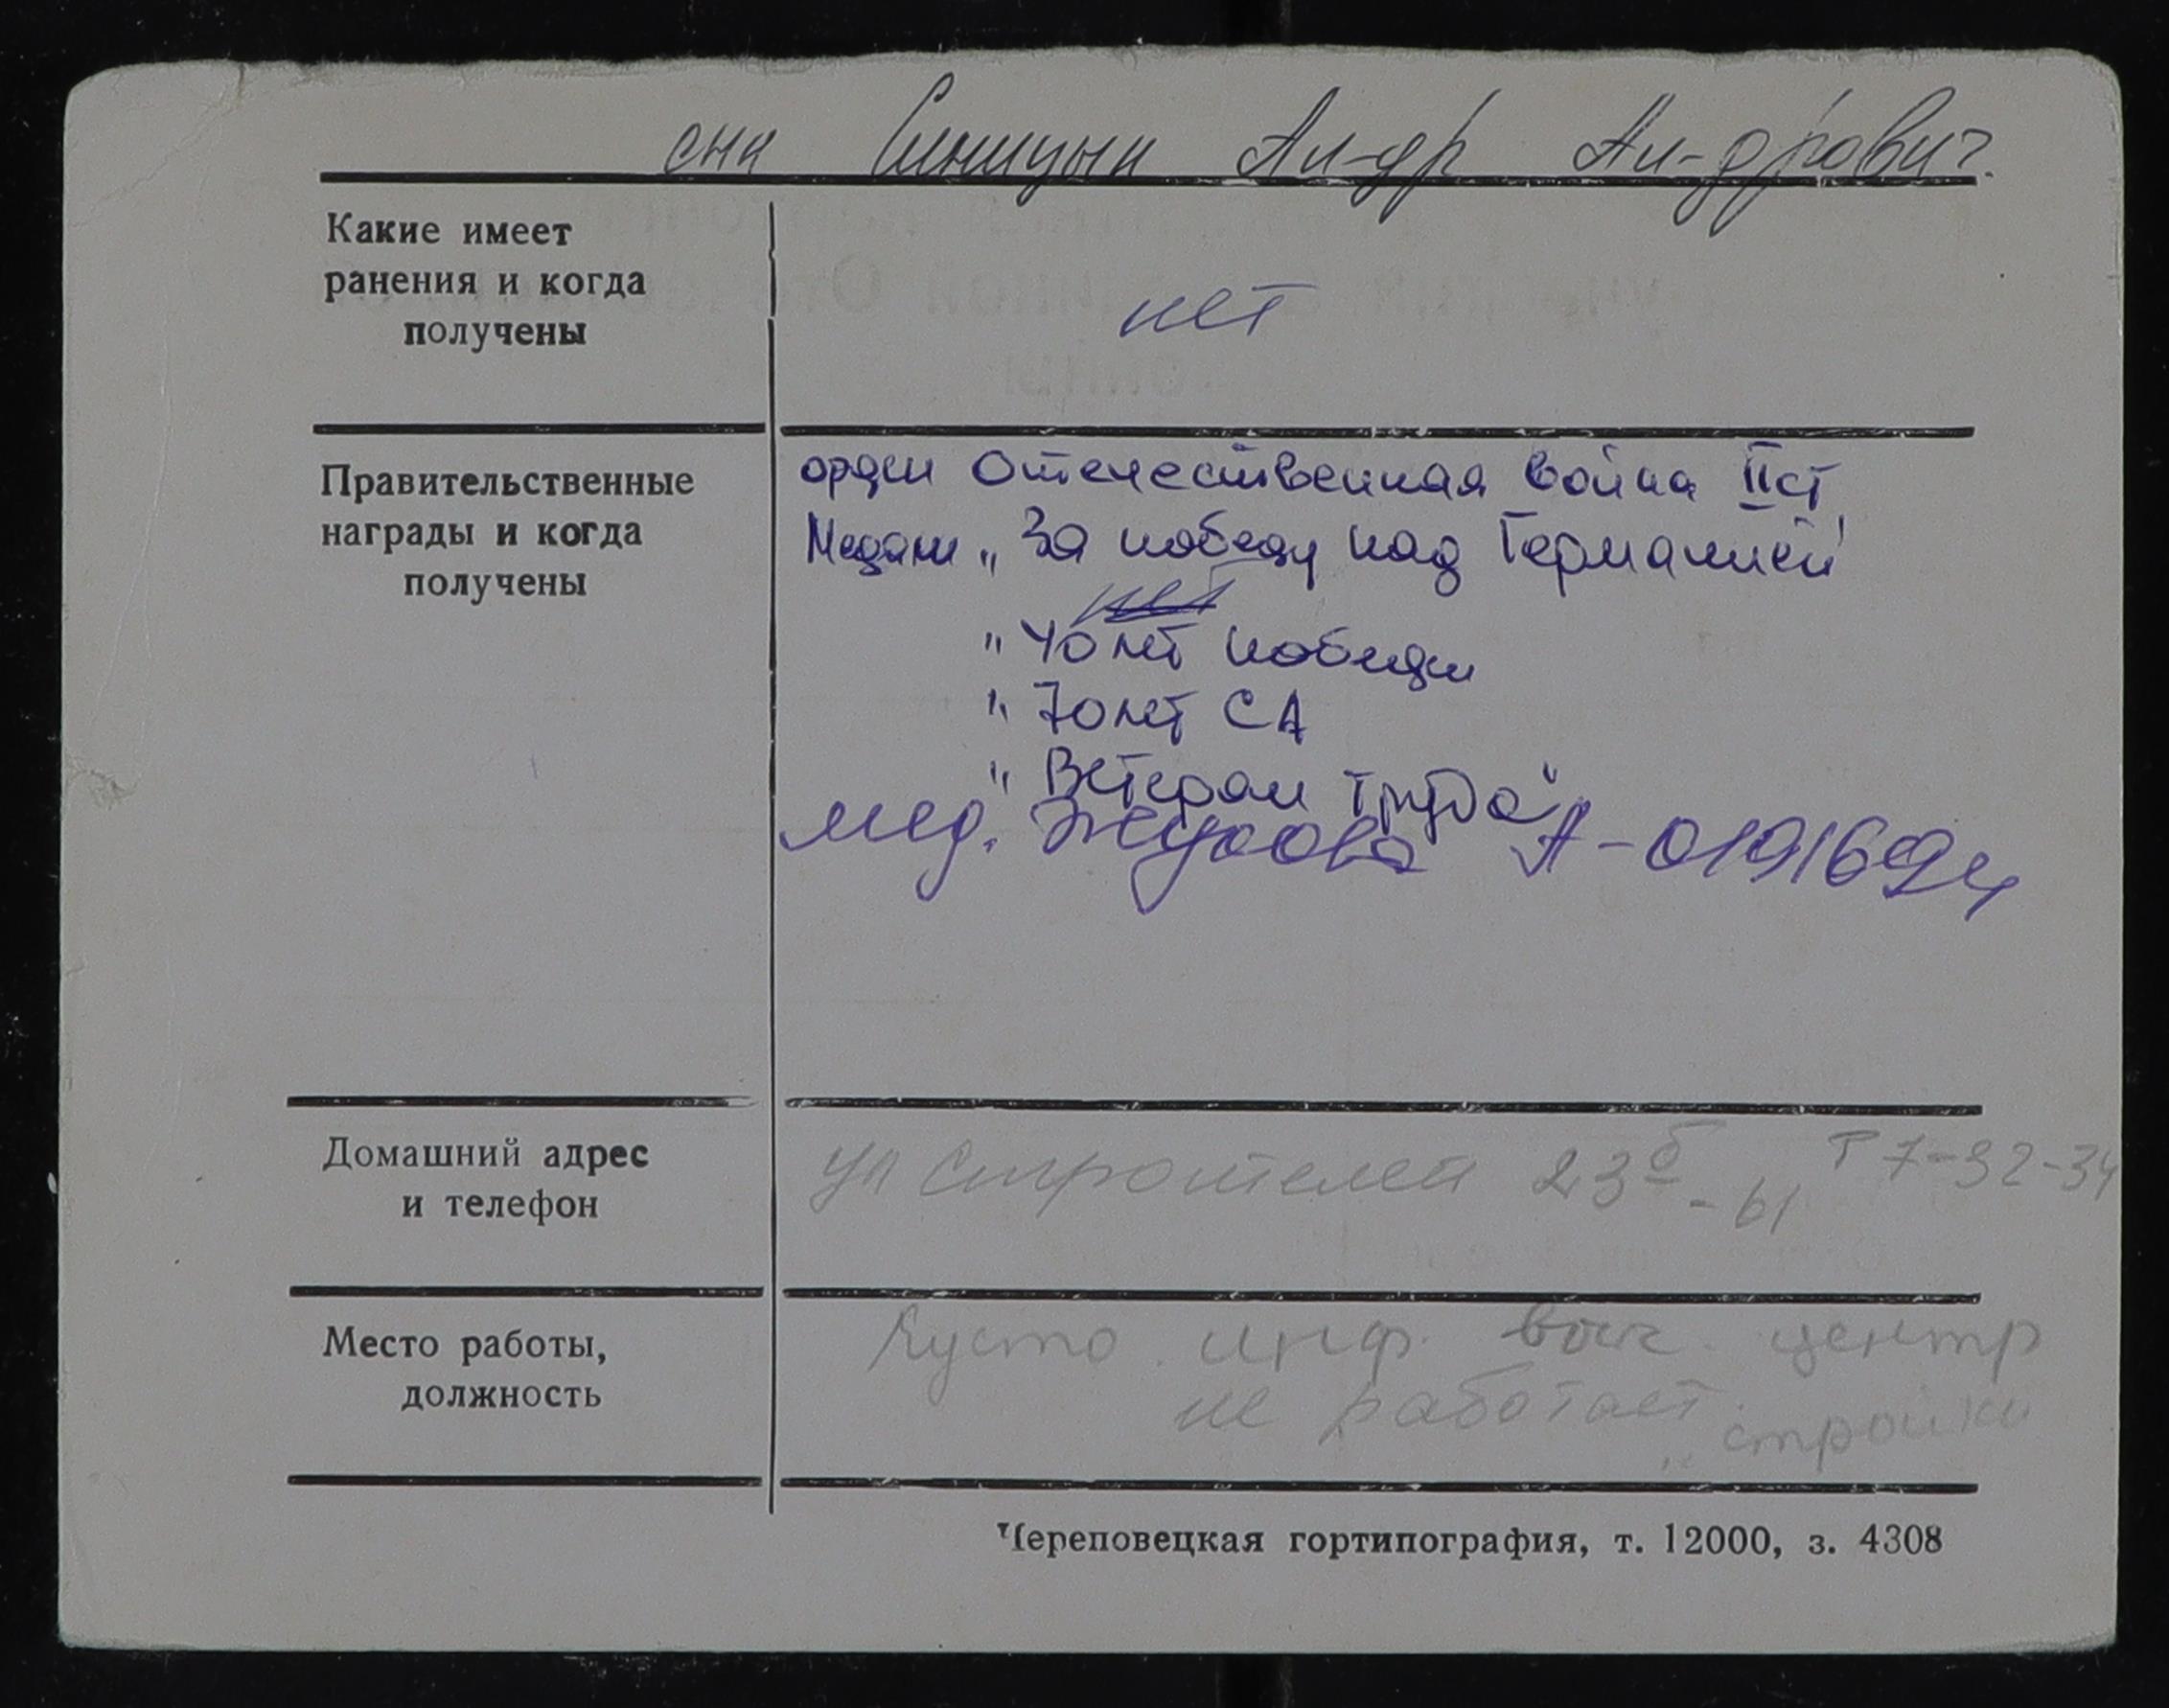 сна Синицын Ал-др Ал-дрович.
Какие имеет
ранения и когда
получены
нет
Правительственные
награды и когда
получены
орден Отечественная война II ст
Медали „За победу над Германией"
нет
" 40 лет победы
" 70 лет СА
" Ветеран труда"
мед. Жукова А-0191694
Домашний адрес
и телефон
ул Строителей 23б - 61 т 7-32-34
Место работы,
должность
Кусто. инф. выч. центр
не работает. стройки
Череповецкая гортипография, т. 12000, з. 4308